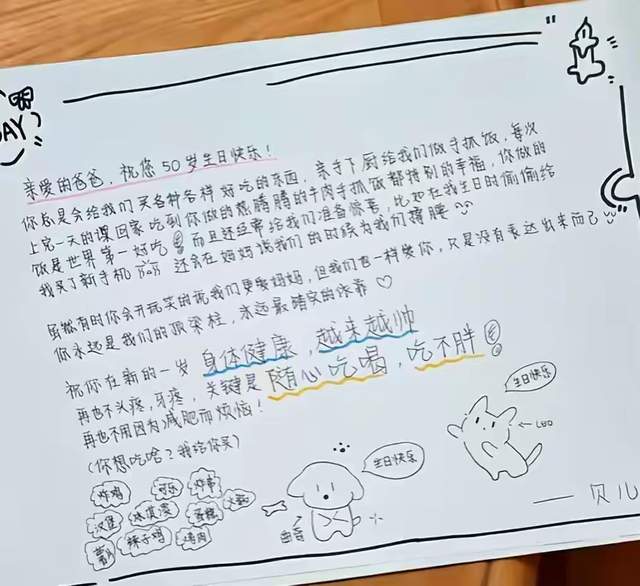 DAY
亲爱的爸爸,祝您50岁生日快乐!
你总是会给我们买各种各样好吃的东西,亲手下厨给我们做手抓饭,每次
上完一天的课回家吃到你做的热腾腾的牛肉手抓饭都特别的幸福,你做的
饭是世界第一好吃 而且还经常给我们准备惊喜,比如在我生日时偷偷给
我买了新手机 还会在妈妈说我们的时候为我们撑腰
虽然有时你会开玩笑的说我们更爱妈妈,但我们也一样爱你,只是没有表达出来而已
你永远是我们的顶梁柱,永远最踏实的依靠♡
祝你在新的一岁 身体健康,越来越帅
再也不头疼,牙疼,关键是随心吃喝,吃不胖
再也不用因为减肥而烦恼!
(你想吃啥?我给你买)
炸鸡
可乐
炸串
汉堡
冰淇淋
蛋糕
火锅
薯条
辣子鸡
烤肉
曲奇
生日快乐
生日快乐
←Leo
——贝儿